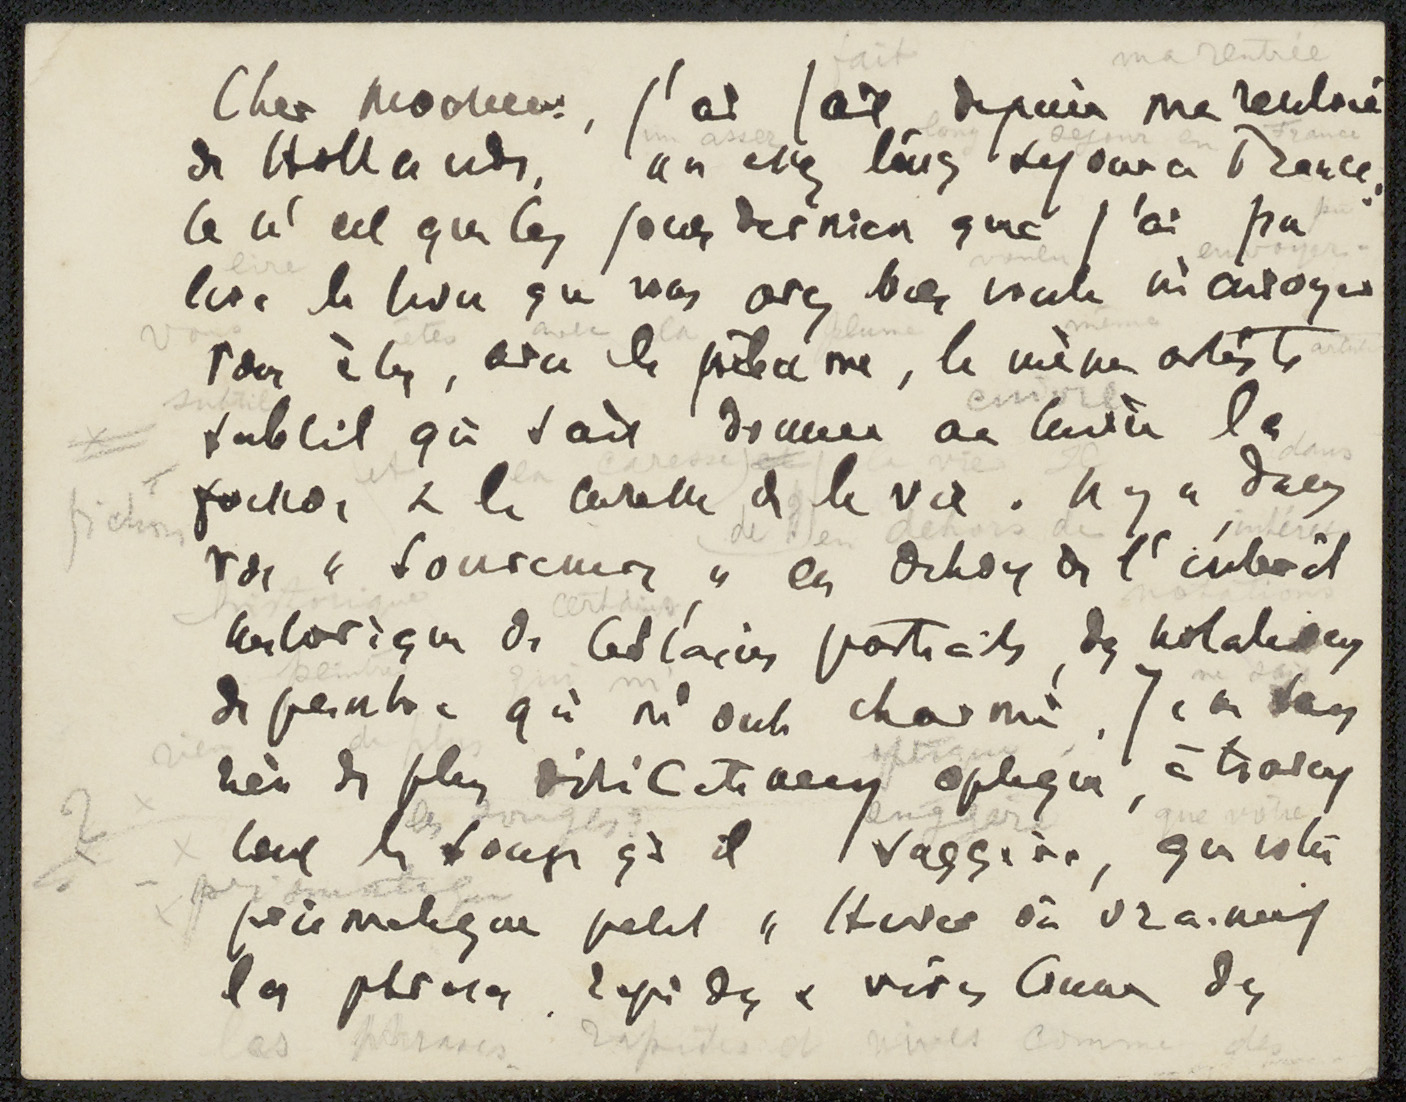 fait ma rentrée
Cher Monsieur, j'ai fait, depuis ma rentrée
un assez long séjour en France
de Hollande, un assez long séjour en France,
pu
ce n'est que ces jours derniers que j'ai pu
lire voulu envoyer
lire le livre que vous avez bien voulu m'envoyer
vous êtes avec la plume même artiste
Vous êtes, avec la plume, le même artiste
subtil cuivre
subtil qui sait donner au cuivre la
et la caresse et la vie dans
& la caresse de la vie. Il y a, dans
fiction de en dehors de intérêt
vos "Souvenirs" en dehors de l'intérêt
historique certains notations
historique de certains portraits, des notations
peintre qui m' ne sais
de peintre qui m'ont charmé. Je ne sais
rien de plus optique
rien de plus délicatement optique, à travers
les songes suggère que votre
tout le songe qu'il suggère, que votre
prismatique
prismatique petit "Hiver où vraiment
les phrases, rapides & vives comme des
les phrases rapides et vives comme des